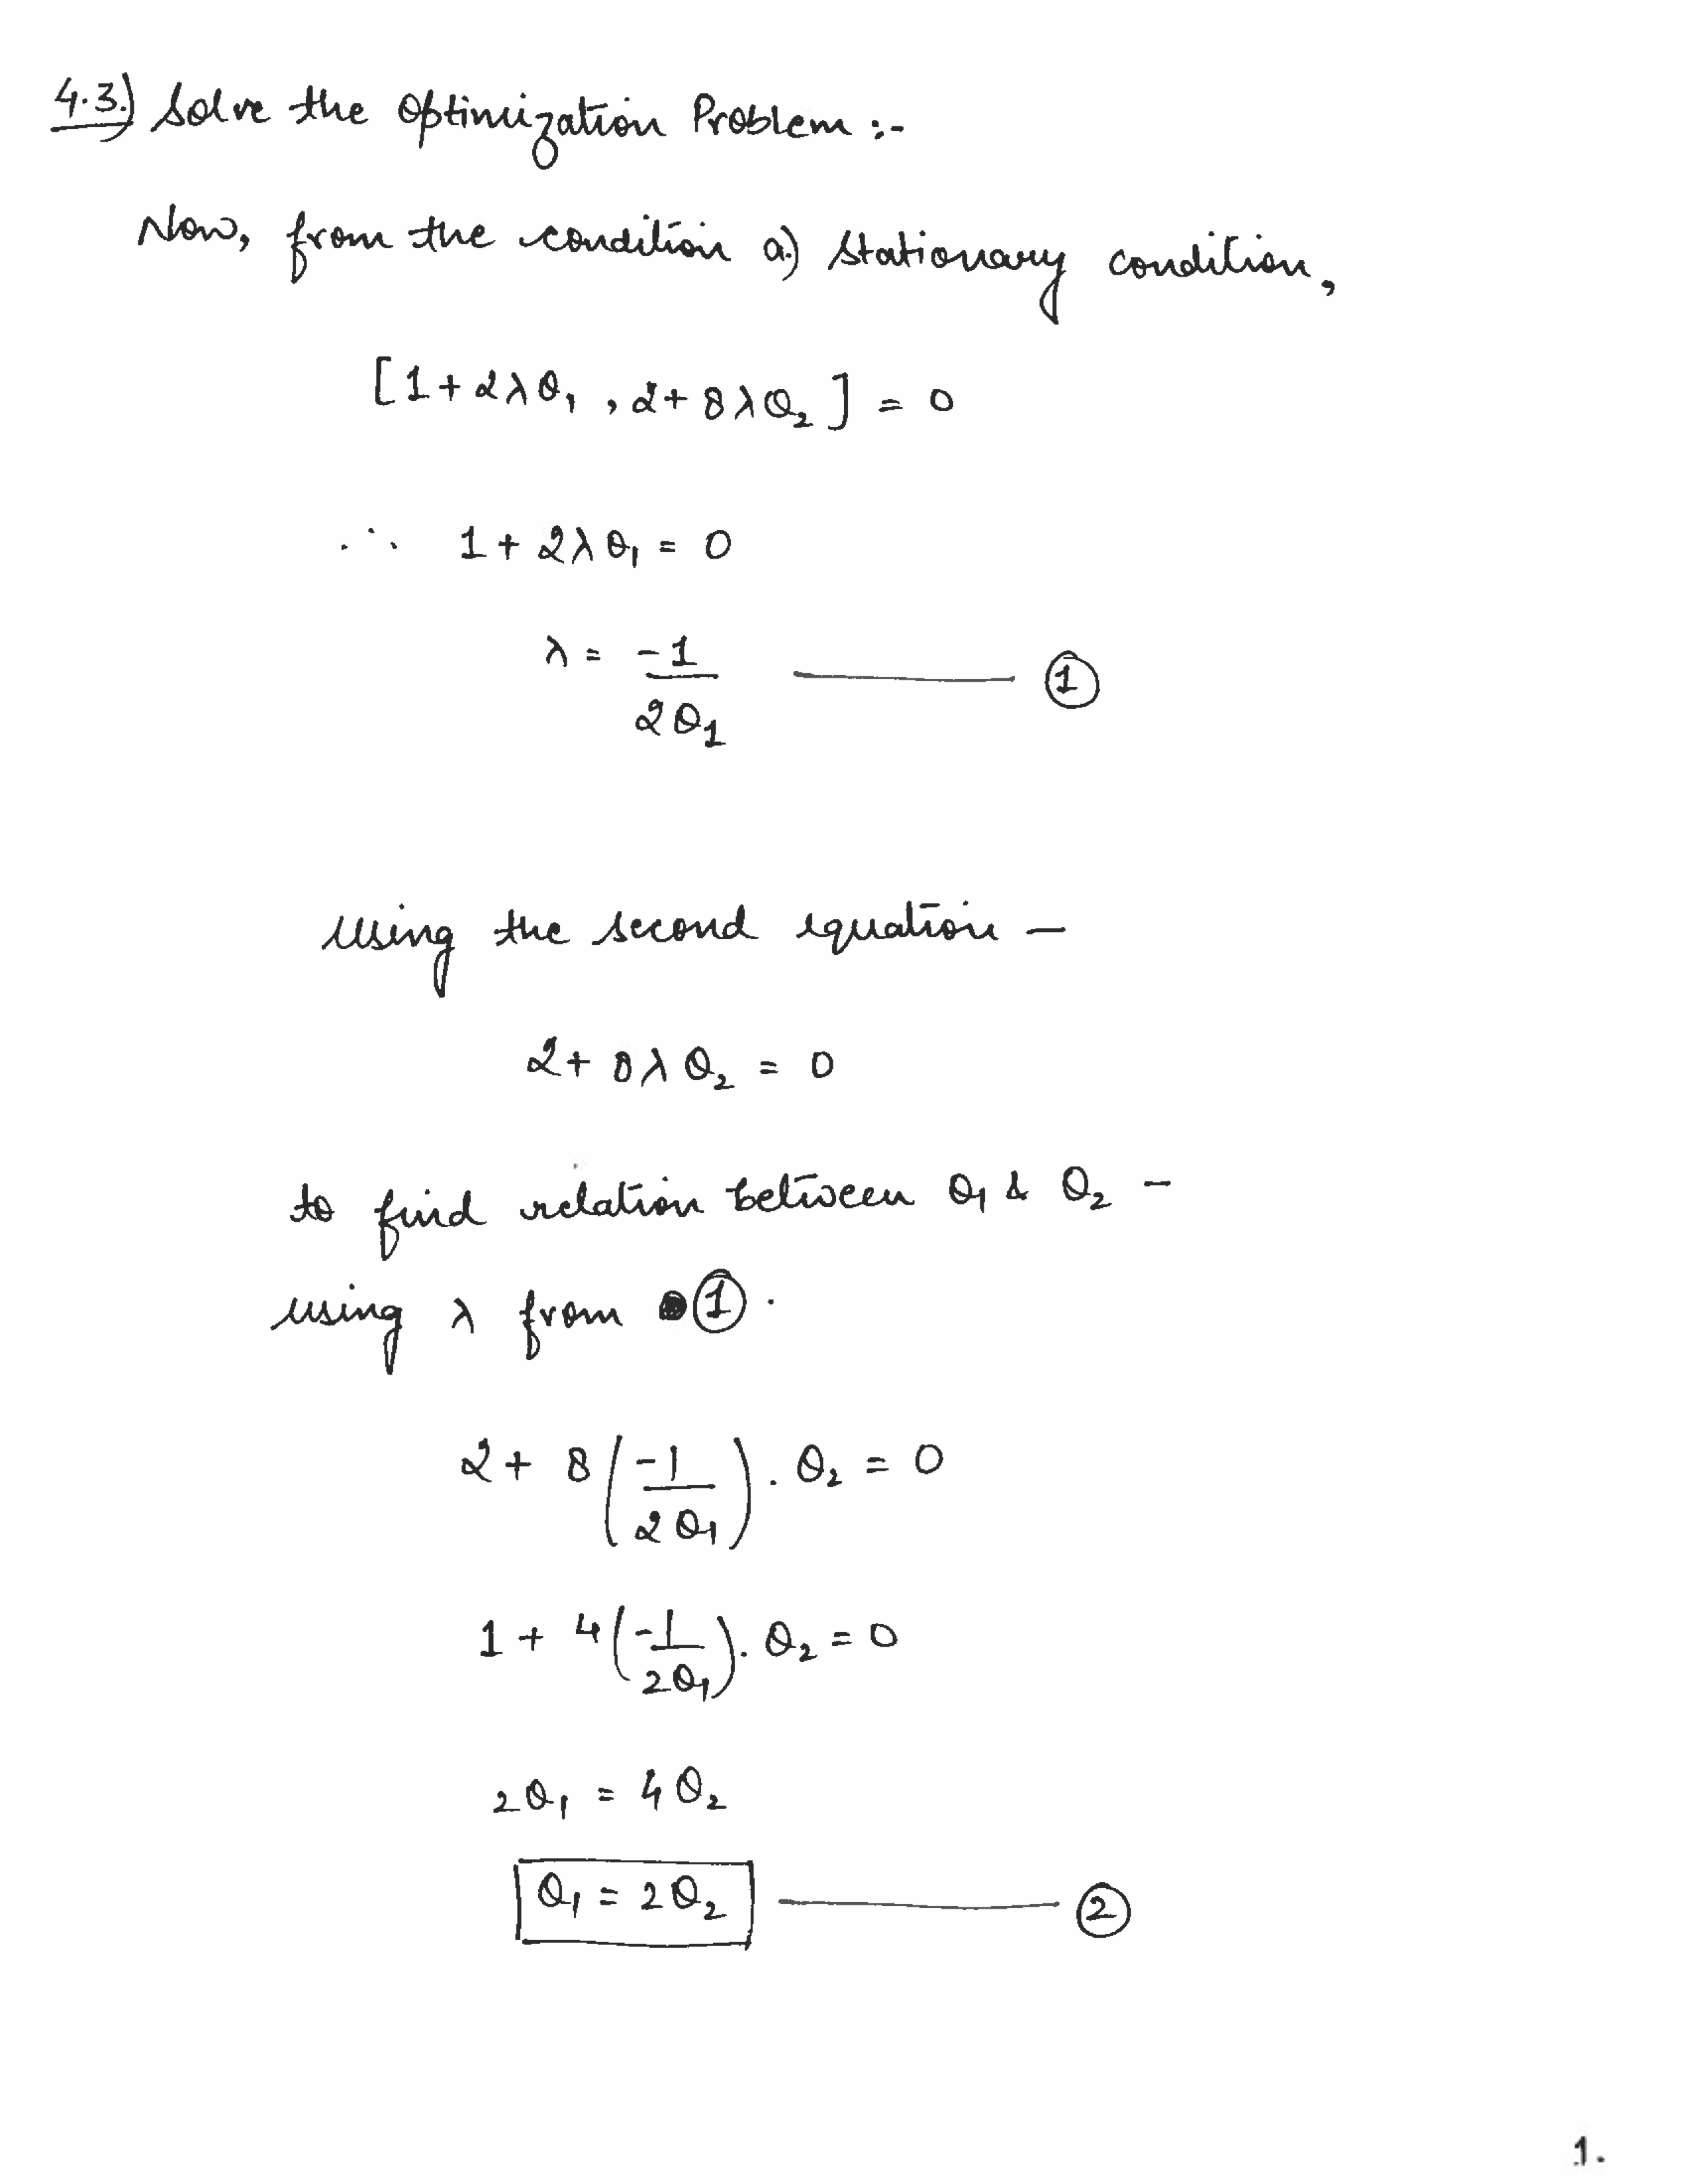 4.3.) Solve the Optimization Problem :-
Now, from the condition a.) Stationary condition,
[1 + 2λθ₁ , 2 + 8λθ₂] = 0
∴ 1 + 2λθ₁ = 0
λ = -1/2θ₁ —— ①
Using the second equation —
2 + 8λθ₂ = 0
to find relation between θ₁ & θ₂ -
using λ from ① .
2 + 8(-1/2θ₁) . θ₂ = 0
1 + 4(-1/2θ₁) . θ₂ = 0
2θ₁ = 4θ₂
θ₁ = 2θ₂ —— ②
1.